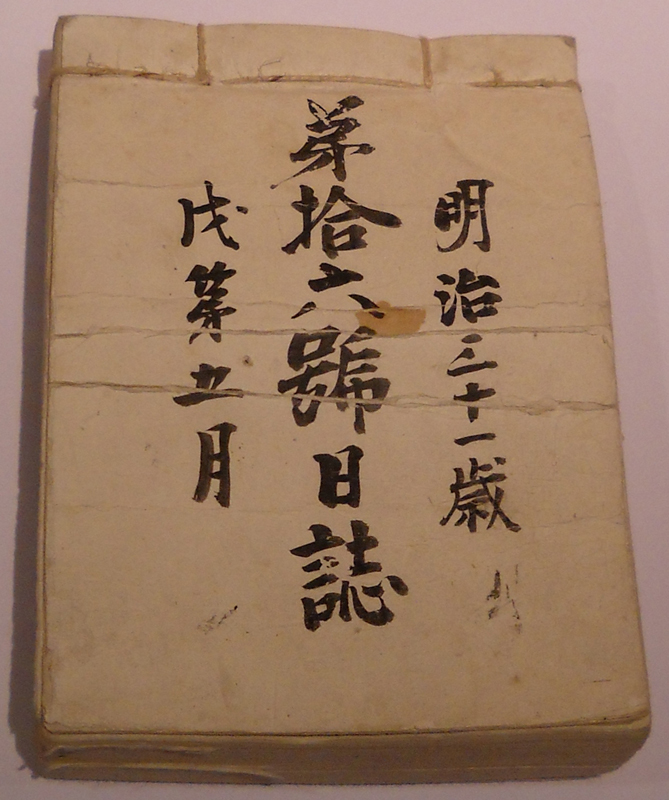 明治三十一歳
第拾六號日誌
戊第五月